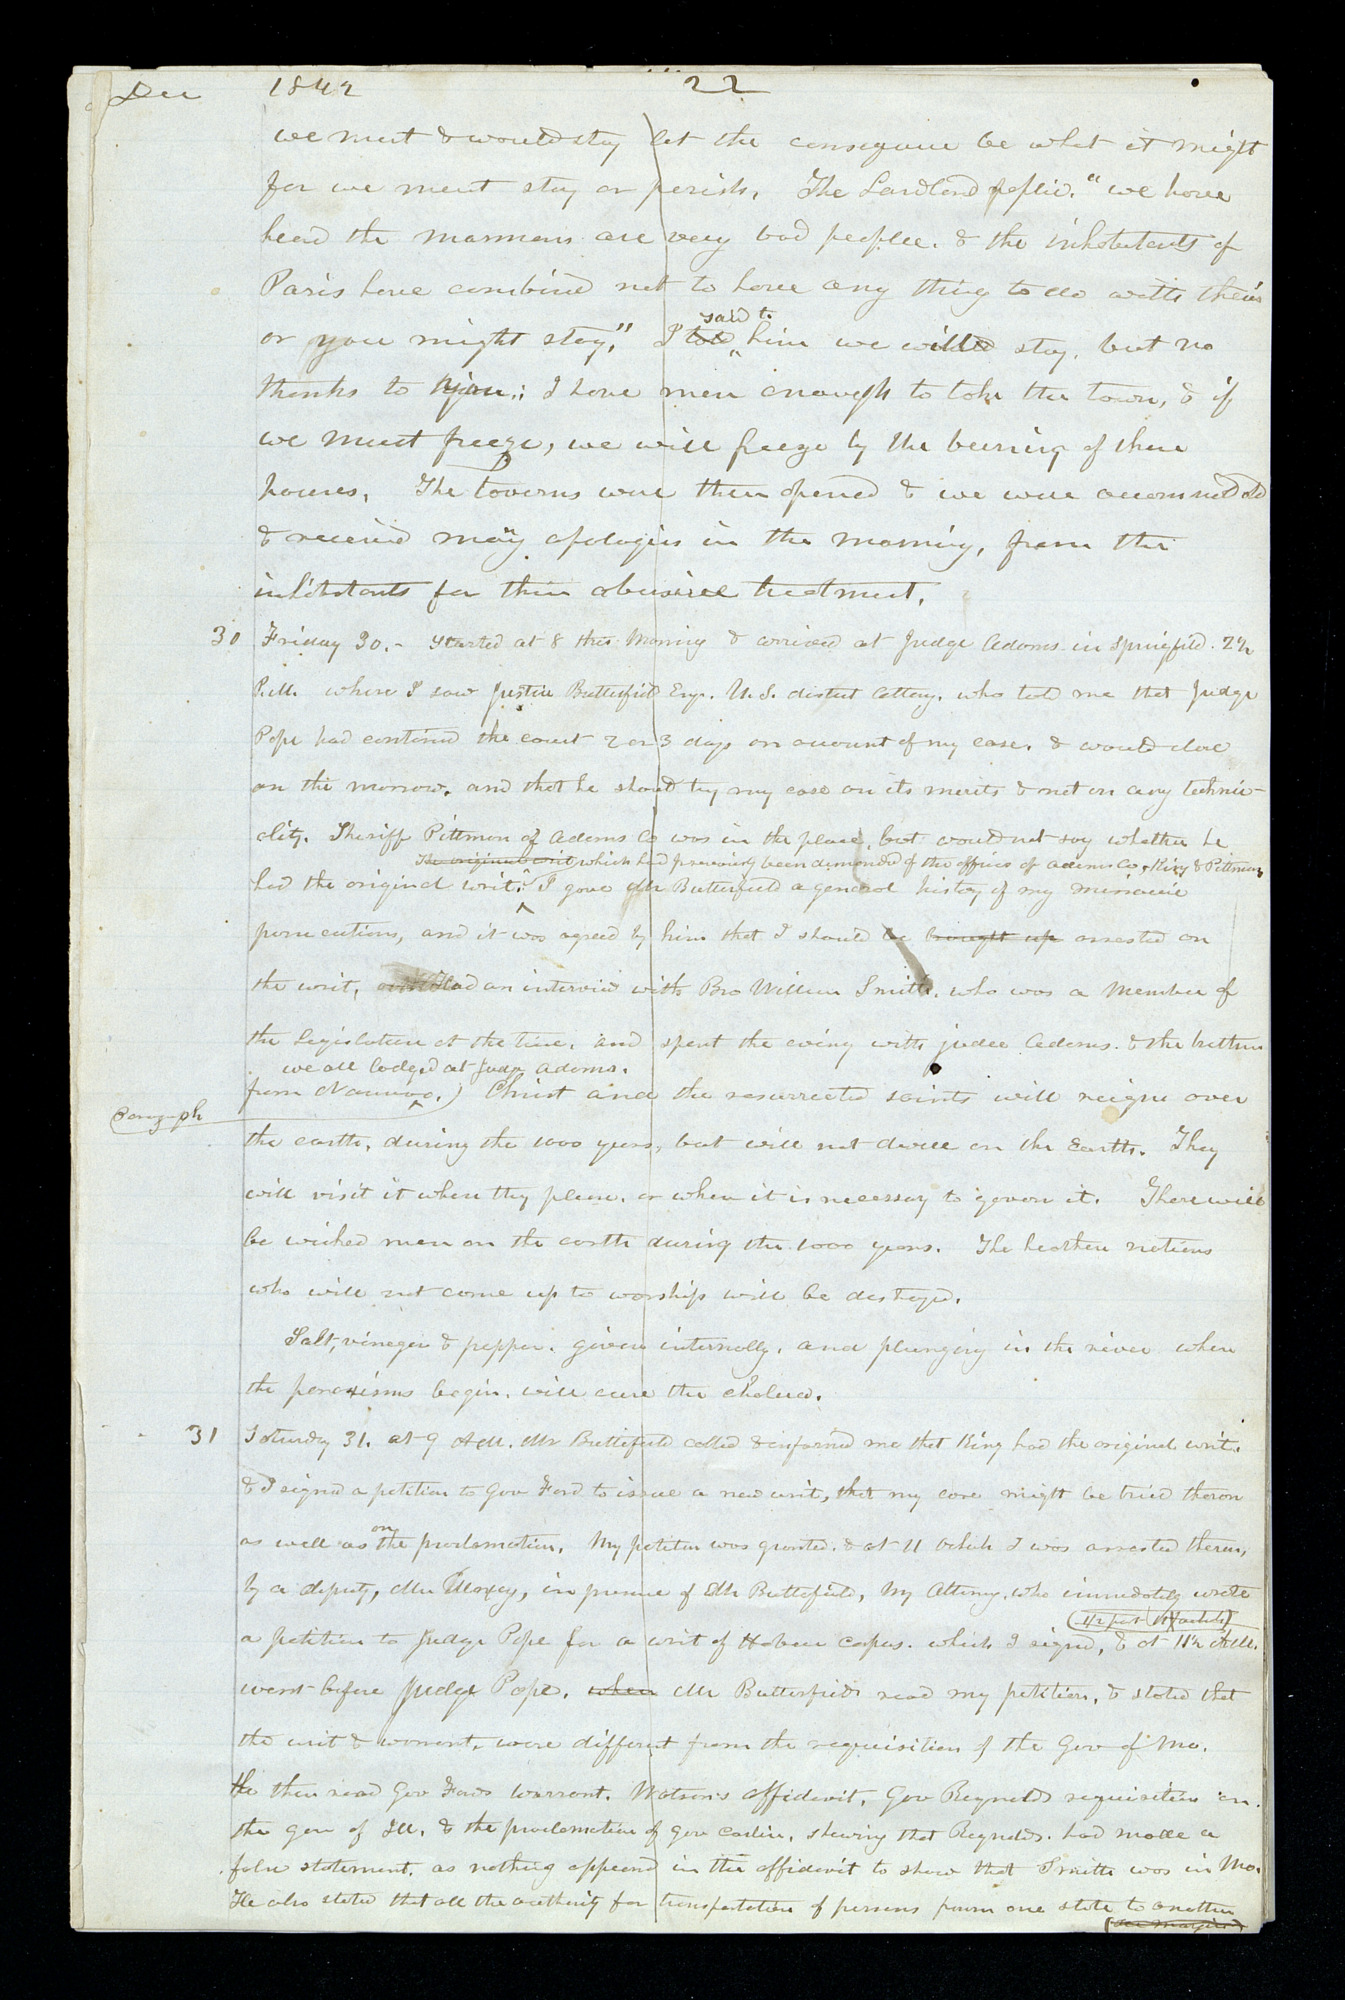 Dec 1842 22
we must & would stay let the consequnce be what it might
for we must stay or perish. The Landlord replid. "we have
heard the mormons are very bad people. & the inhabitants of
Paris have combined not to have any thing to do with them
or you might stay." I told said to him we will stay, but no
thanks to you. I have men enough to take the town, & if
we must freeze, we will freeze by the burning of these
houses. The taverns were then opened & we were accommodated
& received many apologies in the morning, from the
inhabitants for their abusive treatment.
30 Friday 30.- Started at 8 this Morning & arrived at Judge Adams in Springfield. 2½
P.M. where I saw Justin Butterfield Esqr. U.S. district Attorny. who told me that Judge
Pope had continued the court 2 or 3 days on account of my case. & would close
on the morrow. and that he should try my case on its merits & not on any techni-
clity. Sheriff Pittman of Adams Co was in the place, but would not say whether he
The original writ which had previously been demanded of the officers of adams Co, King & Pittman
had the original writ. I gave Mr Butterfield a general history of my missouri
persecutions, and it was agreed by him that I should be brought up arrested on
the writ, Had an interview with Bro William Smith. who was a Member of
the Legislature at the time. and spent the evning with judge Adams. & the brethren
we all lodged at Judge Adams.
from Nauvoo.) Christ and the resurrected saints will reign over
Paragraph
the earth, during the 1000 years, but will not dwell on the Earth. They
will visit it when they please. or when it is necessary to govern it. There will
be wicked men on the earth during the 1000 years. The heathen nations
who will not come up to worship will be destroyed.
Salt, vinegar & pepper. given internally. and plunging in the river when
the paroxisms begin. will cure the cholera.
31 Saturday 31. at 9 A.M. Mr Butterfield called & informed me that King had the original writ.
& I signed a petition to Gov Ford to issue a new writ, that my case might be tried theron
as well as on the proclamation. My petition was granted. & at 11 oclick I was arrested theron,
by a deputy, Mr Maxey, in presence of Mr Butterfield, My Attorny. who immediately wrote
1/2 past 11 oclock
a petition to Judge Pope for a writ of Habeus corpus. which I signed, & at 11½ A.M.
went before Judge Pope. when Mr Butterfield read my petition, & stated that
the writ & warrant. were different from the requisition of the Gov of Mo.
He then read Gov Fords warrant. Watson's affidavit. Gov Reynolds requisition on
the gov of Ill. & the proclamation of Gov Carlin. shewing that Reynolds. had made a
false statement. as nothing appeard in the affidavit to show that Smith was in Mo.
He also stated that all the authority for transportation of persons from one state to another